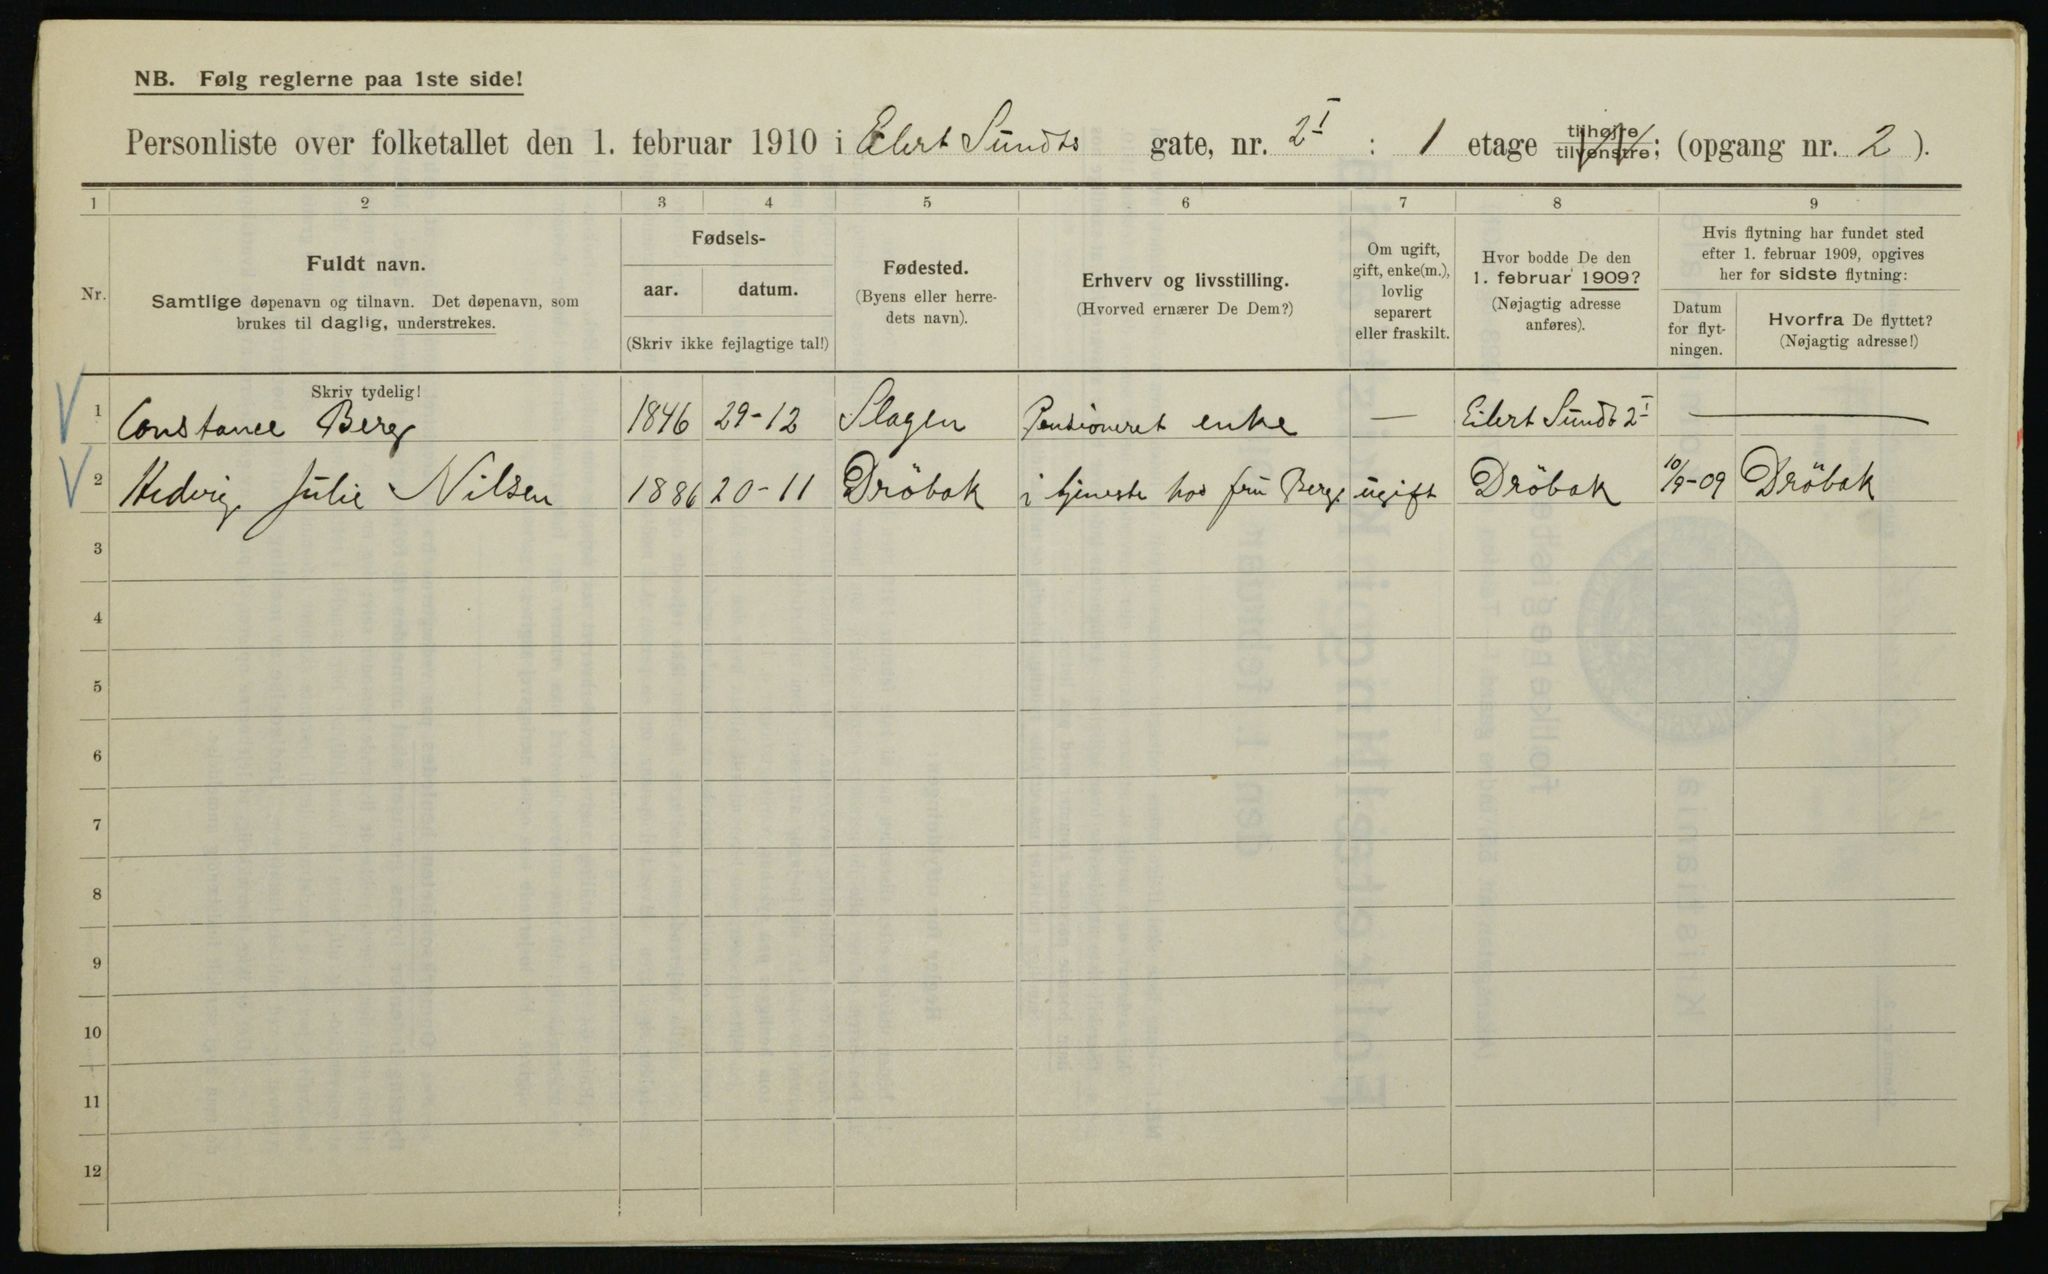 NB. Følg reglerne paa 1ste side!
Personliste over folketallet den 1. februar 1910 i Eilert Sundts gate, nr. 2 I : 1 etage tilhøjre tilvenstre; (opgang nr. 2 ).
1 2 3 4 5 6 7 8 9
Nr.
Fuldt navn.
Samtlige døpenavn og tilnavn. Det døpenavn, som
brukes til daglig, understrekes.
Skriv tydelig!
Fødsels-
aar. datum.
(Skriv ikke fejlagtige tal!)
Fødested.
(Byens eller herre-
dets navn).
Erhverv og livsstilling.
(Hvorved ernærer De Dem?)
Om ugift,
gift, enke(m.),
lovlig
separert
eller fraskilt.
Hvor bodde De den
1. februar 1909?
(Nøjagtig adresse
anføres).
Hvis flytning har fundet sted
efter 1. februar 1909, opgives
her for sidste flytning:
Datum
for flyt-
ningen.
Hvorfra De flyttet?
(Nøjagtig adresse!)
1 Constance Berg 1846 29-12 Slagen Pensioneret enke — Eilert Sundt 2 I —
2 Hedvig Julie Nilsen 1886 20-11 Dröbak i tjeneste hos fru Berg ugift Dröbak 10/9-09 Dröbak
3
4
5
6
7
8
9
10
11
12